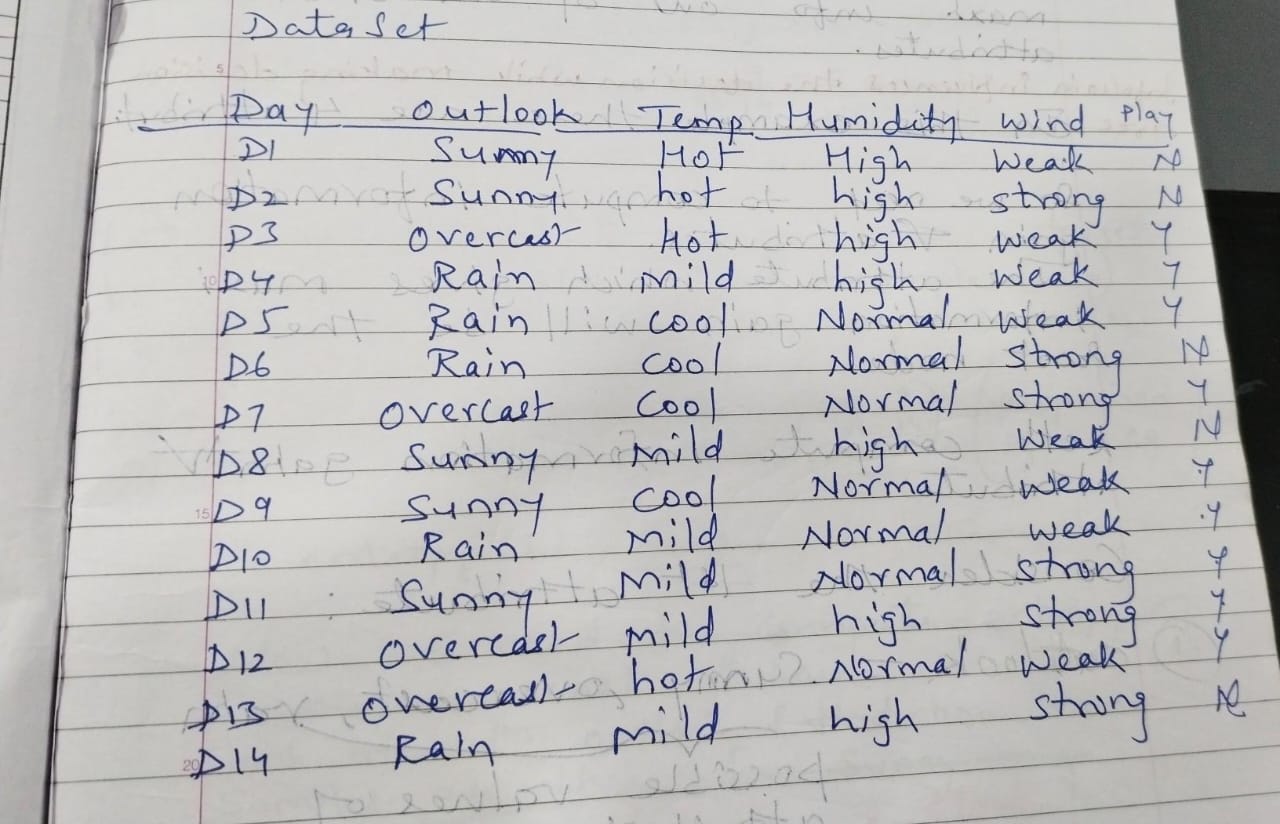 Data Set
5
Day Outlook Temp Humidity Wind Play
D1 Sunny Hot High Weak N
D2 Sunny hot high strong N
D3 Overcast Hot high weak Y
D4 Rain Mild high weak Y
D5 Rain cool Normal weak Y
D6 Rain cool Normal strong N
D7 Overcast cool Normal strong Y
D8 Sunny Mild high weak N
15 D9 Sunny cool Normal weak Y
D10 Rain Mild Normal weak Y
D11 Sunny Mild Normal strong Y
D12 Overcast Mild high strong Y
D13 Overcast hot Normal weak Y
20 D14 Rain Mild high strong N